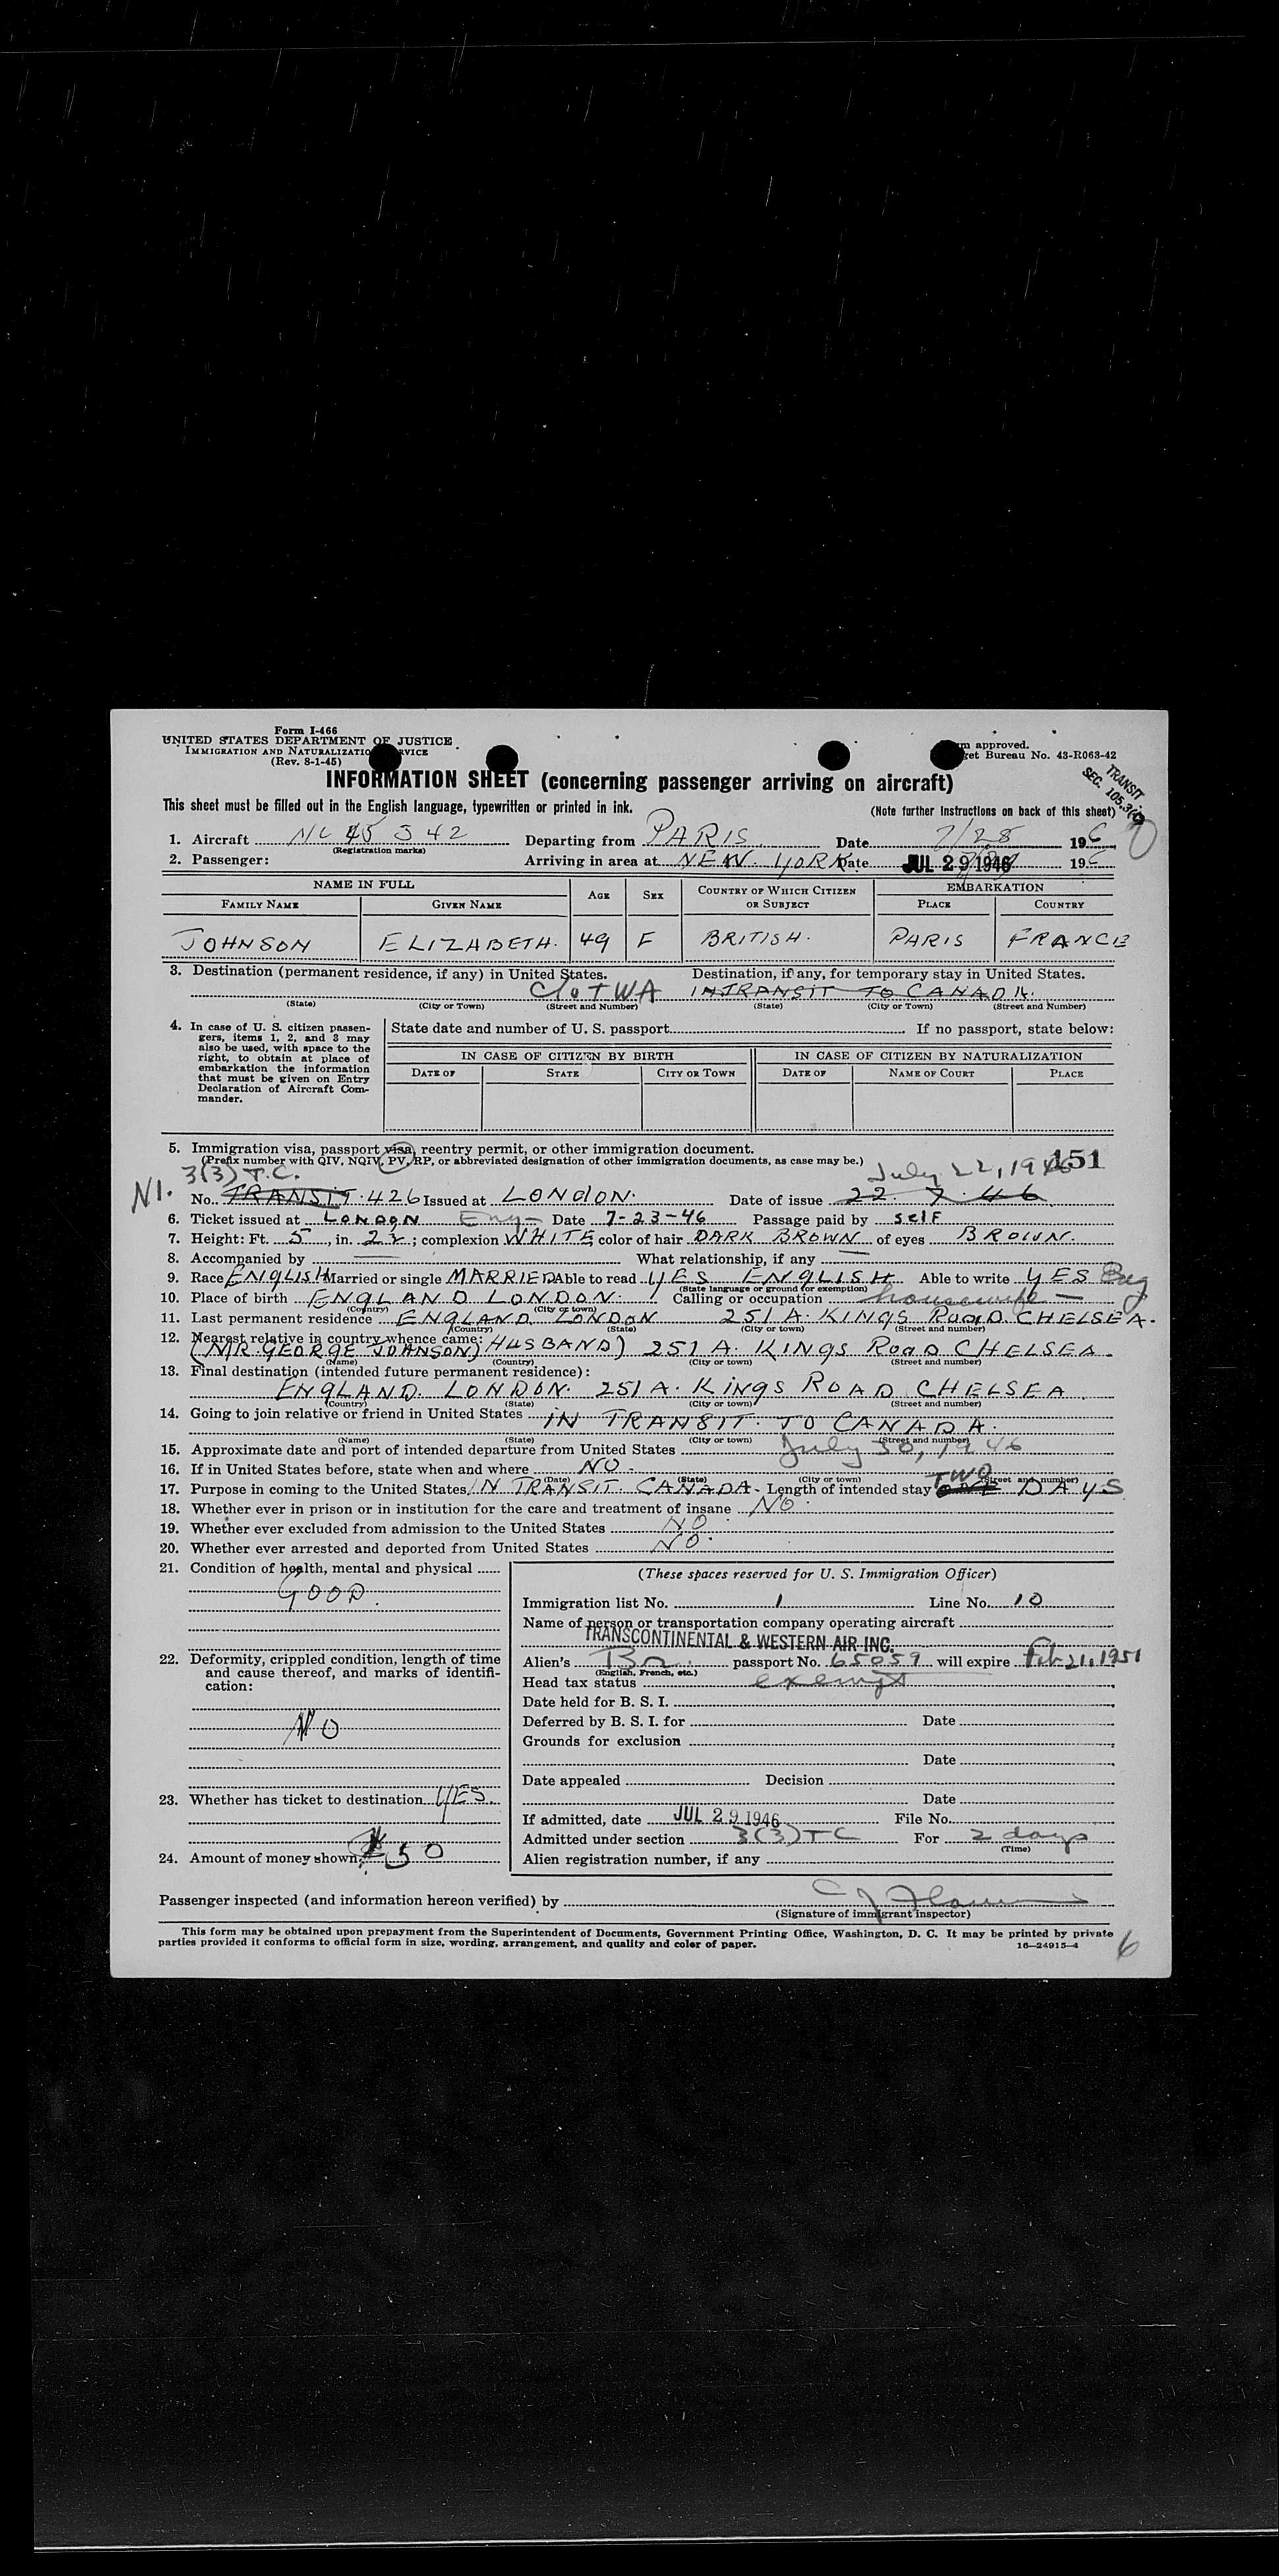 Form I-466
UNITED STATES DEPARTMENT OF JUSTICE
IMMIGRATION AND NATURALIZATION SERVICE
(Rev. 8-1-45)
approved.
Bureau No. 43-R063-42
TRANSIT
SEC. 105.3(
INFORMATION SHEET (concerning passenger arriving on aircraft)
This sheet must be filled out in the English language, typewritten or printed in ink.
(Note further instructions on back of this sheet)
1. Aircraft NC 45342 Departing from PARIS Date 7/28 1946
(Registration marks)
2. Passenger: Arriving in area at NEW YORK Date JUL 29 1946 1946
NAME IN FULL AGE SEX COUNTRY OF WHICH CITIZEN OR SUBJECT EMBARKATION
FAMILY NAME GIVEN NAME PLACE COUNTRY
JOHNSON ELIZABETH. 49 F BRITISH. PARIS FRANCE
3. Destination (permanent residence, if any) in United States. Destination, if any, for temporary stay in United States.
C/o TWA INTRANSIT TO CANADA.
(State) (City or Town) (Street and Number) (State) (City or Town) (Street and Number)
4. In case of U. S. citizen passen-
gers, items 1, 2, and 3 may
also be used, with space to the
right, to obtain at place of
embarkation the information
that must be given on Entry
Declaration of Aircraft Com-
mander.
State date and number of U. S. passport If no passport, state below:
IN CASE OF CITIZEN BY BIRTH IN CASE OF CITIZEN BY NATURALIZATION
DATE OF STATE CITY OR TOWN DATE OF NAME OF COURT PLACE
5. Immigration visa, passport visa, reentry permit, or other immigration document.
(Prefix number with QIV, NQIV, PV, RP, or abbreviated designation of other immigration documents, as case may be.)
151
3(3) T.C. July 22, 1946
NI. No. TRANSIT. 426 Issued at LONDON. Date of issue 22. 7. 46
6. Ticket issued at LONDON Eng Date 7-23-46 Passage paid by SELF
7. Height: Ft. 5, in. 2½; complexion WHITE; color of hair DARK BROWN of eyes BROWN.
8. Accompanied by — What relationship, if any —
9. Race ENGLISH Married or single MARRIED Able to read YES ENGLISH Able to write YES Eng
(State language or ground for exemption)
10. Place of birth ENGLAND LONDON. Calling or occupation housewife —
(Country) (City or town)
11. Last permanent residence ENGLAND LONDON 251 A. KINGS ROAD CHELSEA.
(Country) (State) (City or town) (Street and number)
12. Nearest relative in country whence came:
(MR GEORGE JOHNSON) HUSBAND) 251 A. KINGS ROAD CHELSEA.
(Name) (Country) (City or town) (Street and number)
13. Final destination (intended future permanent residence):
ENGLAND. LONDON. 251 A. KINGS ROAD CHELSEA
(Country) (State) (City or town) (Street and number)
14. Going to join relative or friend in United States IN TRANSIT. TO CANADA.
(Name) (State) (City or town) (Street and number)
15. Approximate date and port of intended departure from United States July 30, 1946
16. If in United States before, state when and where NO.
(Date) (State) (City or town) (Street and number)
17. Purpose in coming to the United States IN TRANSIT CANADA. Length of intended stay ONE TWO DAYS
18. Whether ever in prison or in institution for the care and treatment of insane NO.
19. Whether ever excluded from admission to the United States NO.
20. Whether ever arrested and deported from United States NO.
21. Condition of health, mental and physical
GOOD.
22. Deformity, crippled condition, length of time
and cause thereof, and marks of identifi-
cation:
NO
23. Whether has ticket to destination YES.
24. Amount of money shown 50
(These spaces reserved for U. S. Immigration Officer)
Immigration list No. 1 Line No. 10
Name of person or transportation company operating aircraft
TRANSCONTINENTAL & WESTERN AIR INC.
Alien's Br. passport No. 65059 will expire Feb 21, 1951
(English, French, etc.)
Head tax status exempt
Date held for B. S. I.
Deferred by B. S. I. for Date
Grounds for exclusion
Date
Date appealed Decision
Date
If admitted, date JUL 29 1946 File No.
Admitted under section 3(3) TC For 2 days
(Time)
Alien registration number, if any
Passenger inspected (and information hereon verified) by
(Signature of immigrant inspector)
This form may be obtained upon prepayment from the Superintendent of Documents, Government Printing Office, Washington, D. C. It may be printed by private
parties provided it conforms to official form in size, wording, arrangement, and quality and color of paper. 16—24915-4
6